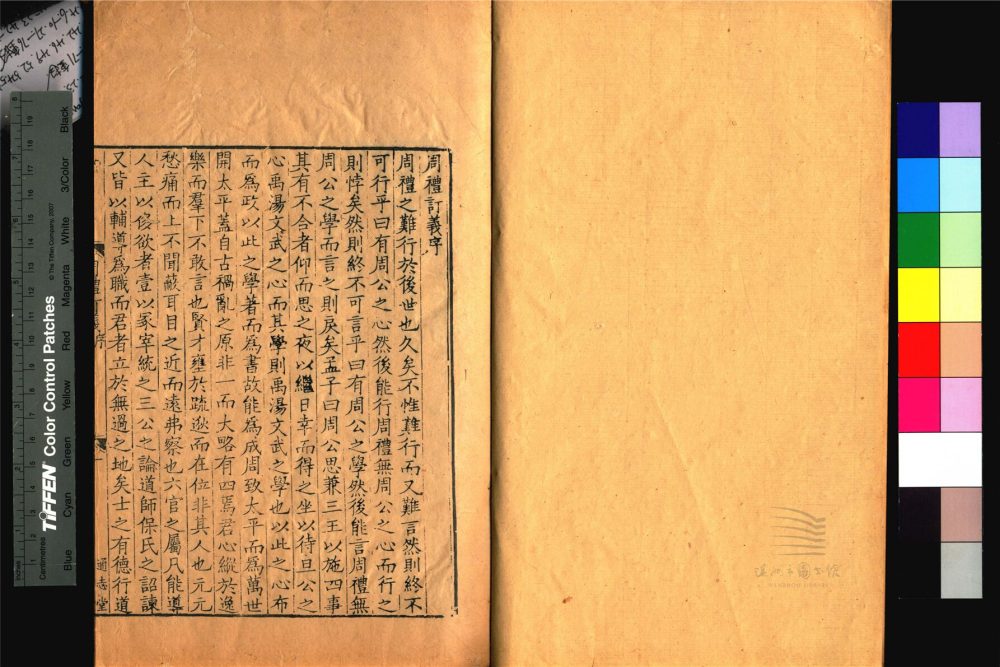 周禮訂義序
周禮之難行於後世也久矣不惟難行而又難言然則終不
可行乎曰有周公之心然後能行周禮無周公之心而行之
則悖矣然則終不可言乎曰有周公之學然後能言周禮無
周公之學而言之則戾矣孟子曰周公思兼三王以施四事
其有不合者仰而思之夜以繼日幸而得之坐以待旦公之
心禹湯文武之心而其學則禹湯文武之學也以此之心布
而為政以此之學著而為書故能為成周致太平而為萬世
開太平蓋自古禍亂之原非一而大略有四焉君心縱於逸
樂而羣下不敢言也賢才壅於疏逖而在位非其人也元元
愁痛而上不聞蔽耳目之近而遠弗察也六官之屬凡能導
人主以侈欲者壹以冢宰統之三公之論道師保氏之詔諫
又皆以輔導為職而君者立於無過之地矣士之有德行道
周禮訂義序
一
通志堂
溫州市圖書館
WENZHOU LIBRARY
Inches
Centimetres
TIFFEN Color Control Patches
© The Tiffen Company, 2007
Blue
Cyan
Green
Yellow
Red
Magenta
White
3/Color
Black